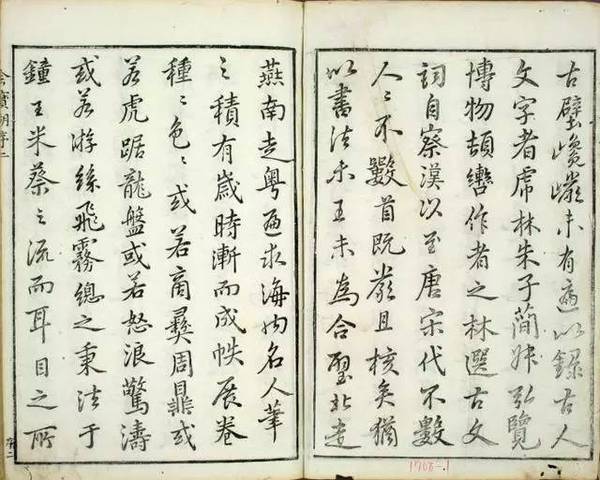 古壁未有適以錄古人
文字者虎林朱子簡弘覽
博物頡轡作者之林選古文
詞自漢以至唐宋代不數
人〻不數首既嚴且核矣猶
以書法未王未為合璧北走
燕南走粵遍求海內名人筆
之積有歲時漸而成帙展卷
種〻色〻或若商彝周鼎或
若虎踞龍盤或若怒浪驚濤
或若游絲飛霧總之秉法于
鐘王米蔡之流而耳目之所
序二
1708-1